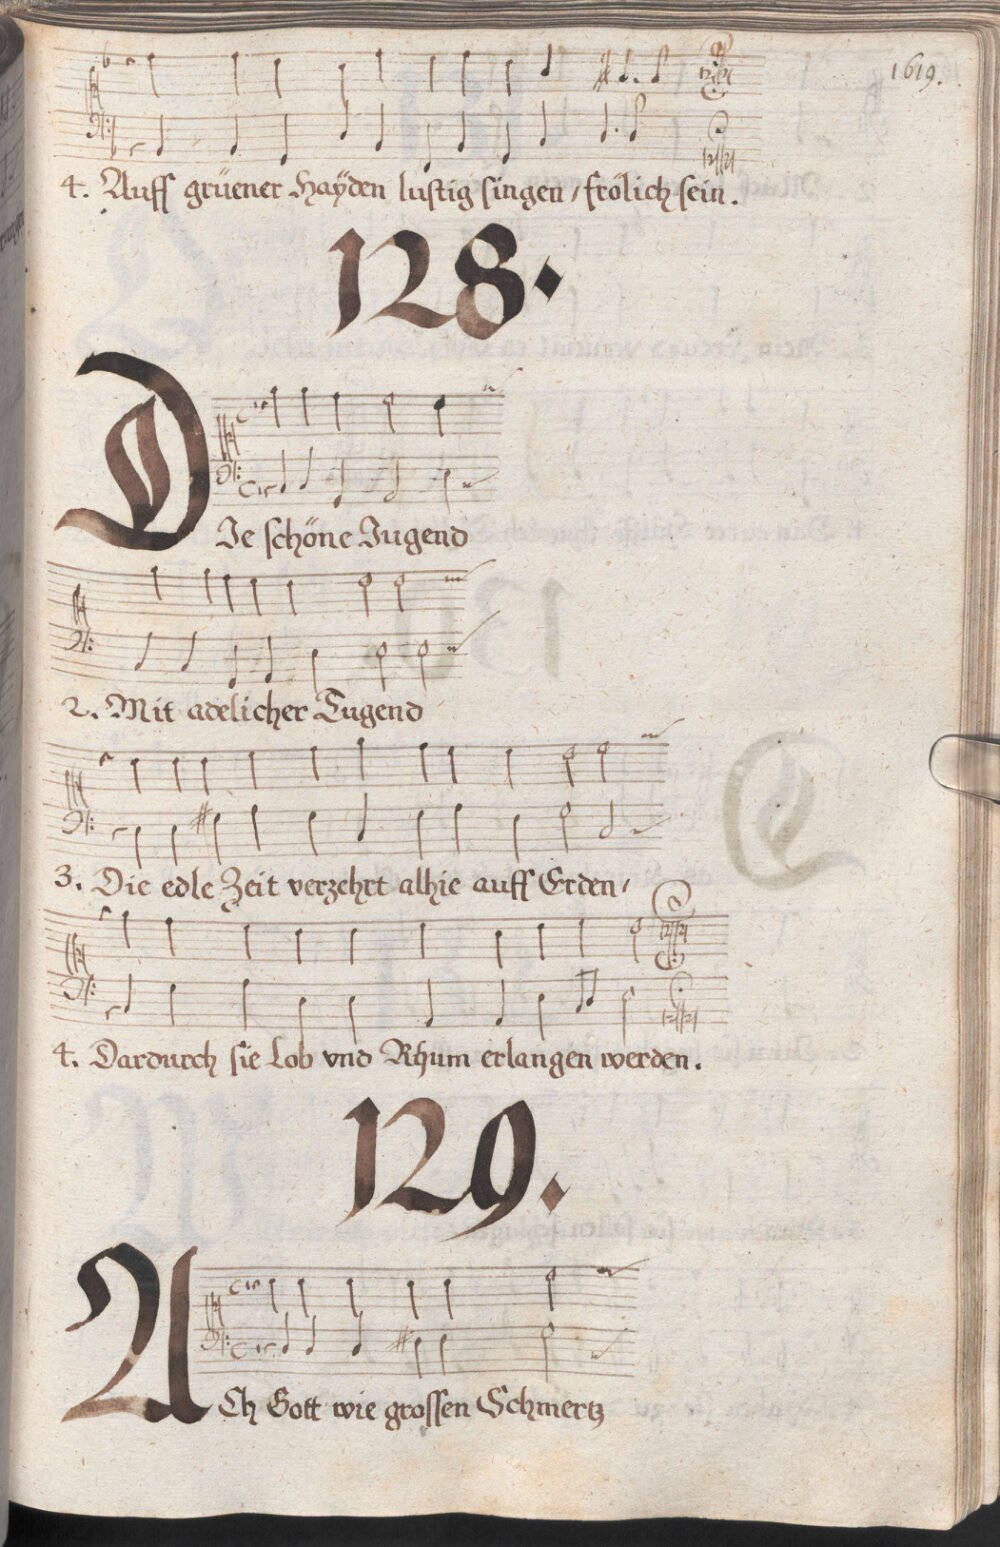 1619.
4. Auff grüener Haÿden lustig singen / frölich sein.
128.
DIe schöne Jugend
2. Mit adelicher Tugend
3. Die edle Zeit verzehrt alhie auff Erden /
4. Dardurch sie Lob vnd Rhum erlangen werden.
129.
ACh Gott wie grossen Schmertz